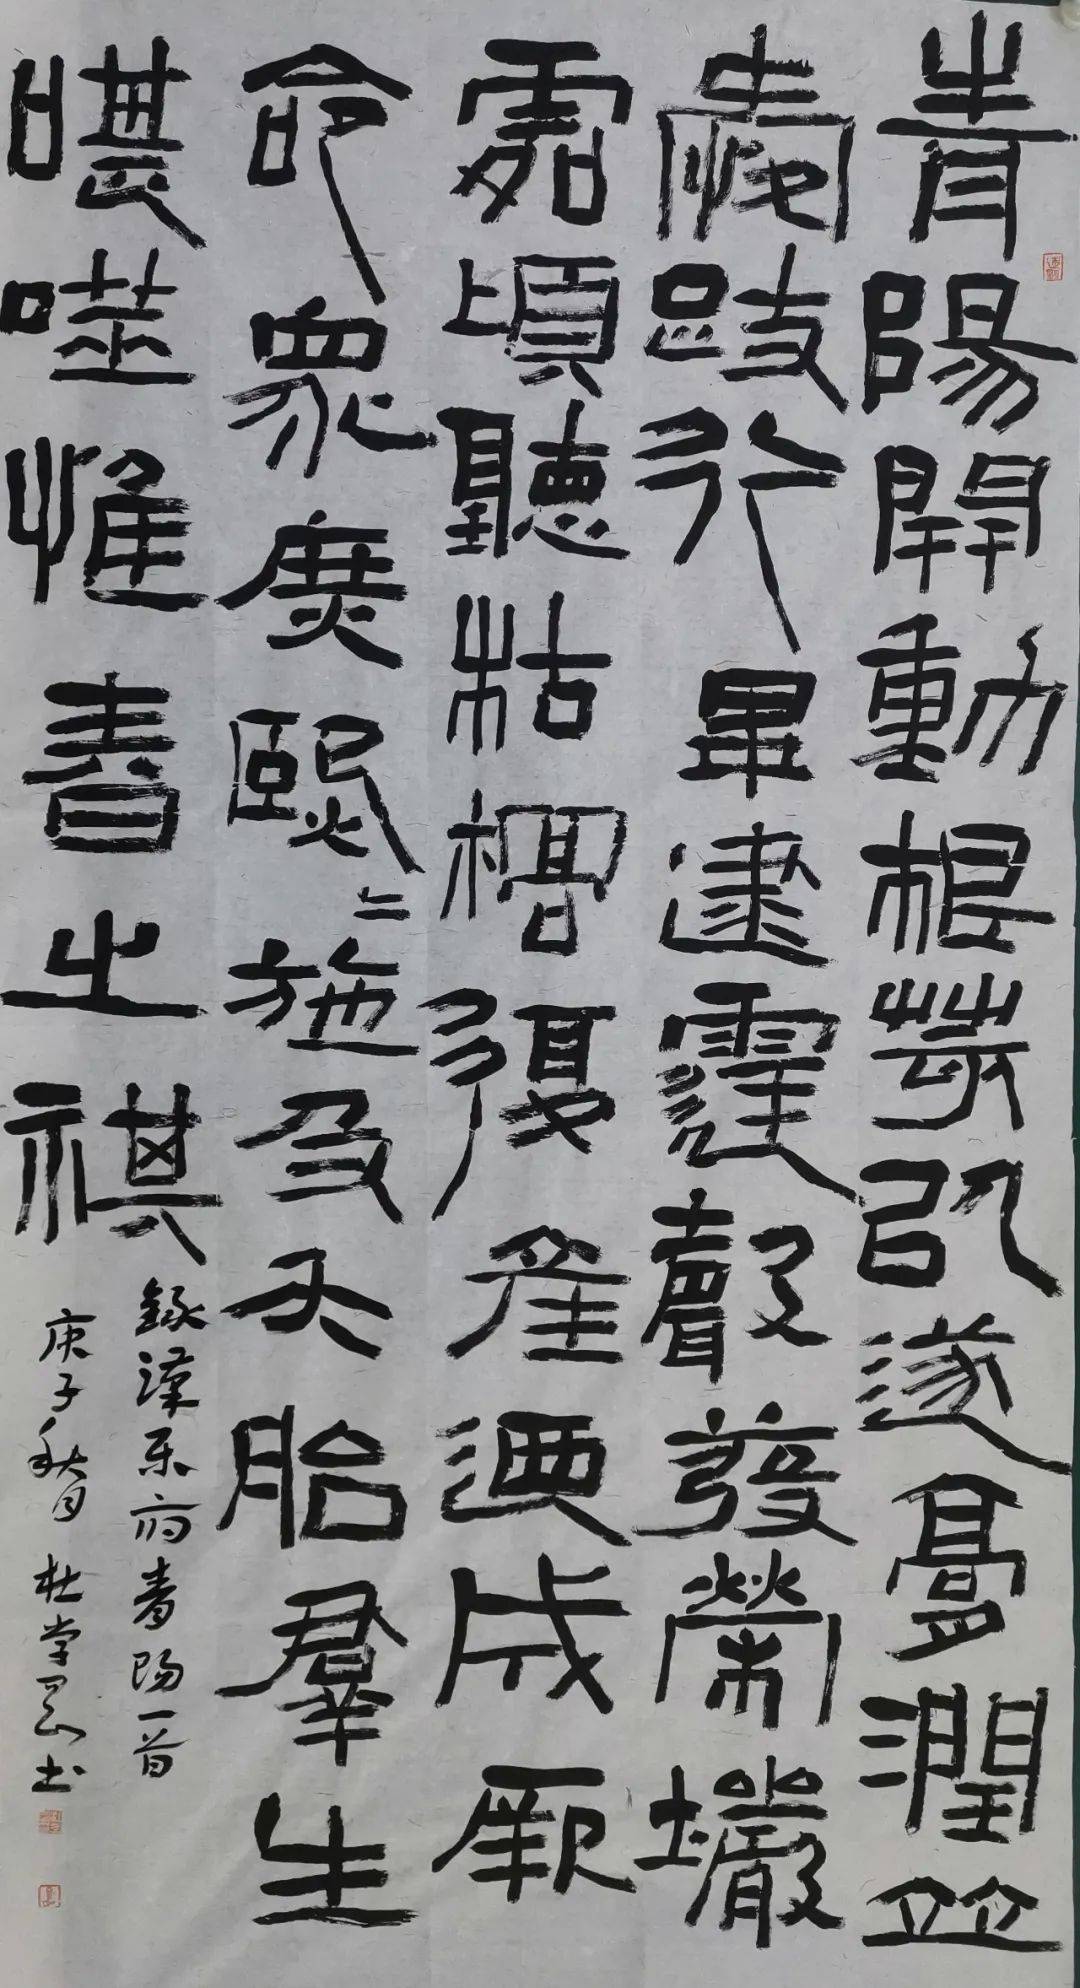 青陽開動根荄以遂膏潤並
愛跂行畢逮霆聲發榮壧
處頃聽枯槁復產迺成厥
命眾庶熙〻施及夭胎羣生
啿噬惟春之祺
錄漢乐府青陽一首
庚子秋日 杜学书